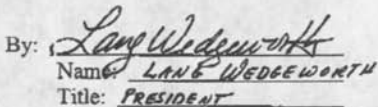 By: Lang Wedgeworth
Name: LANG WEDGEWORTH
Title: PRESIDENT